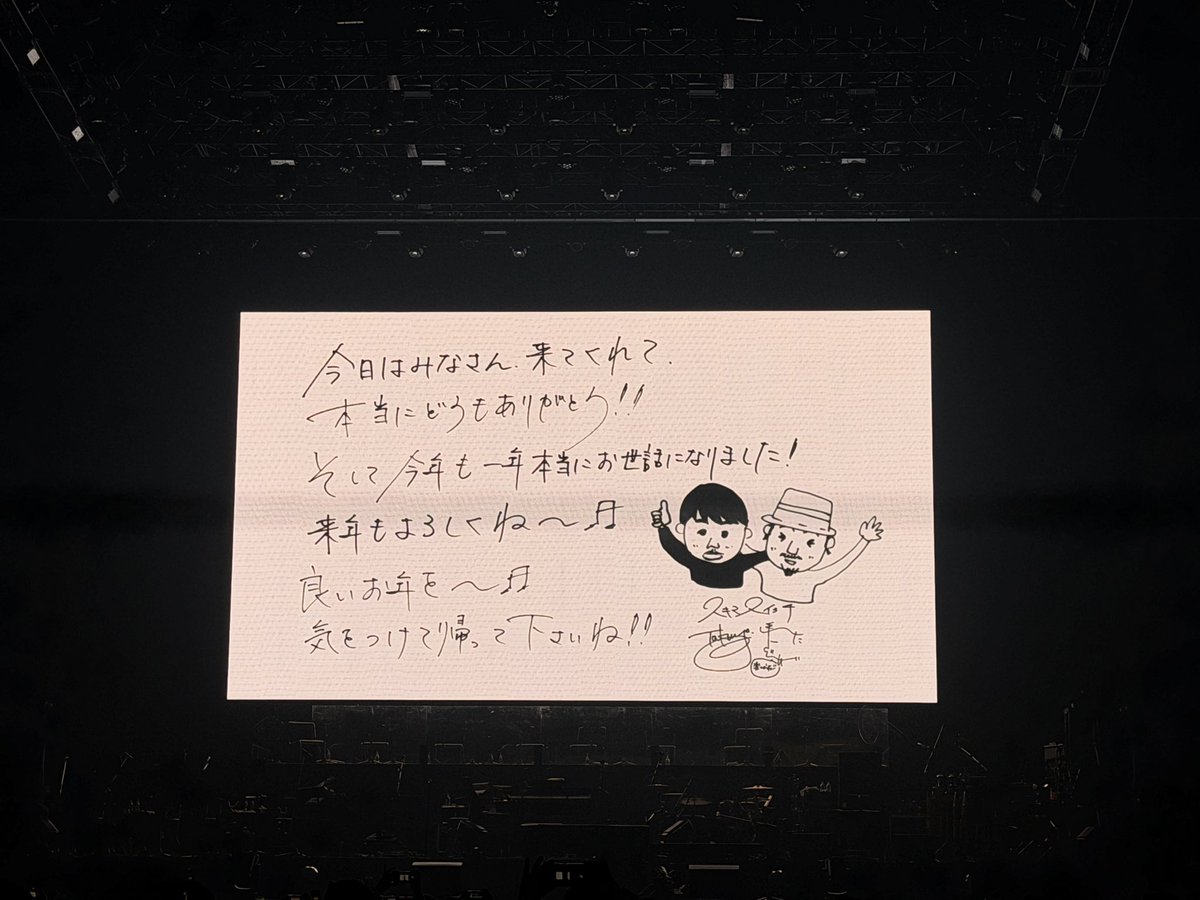 今日はみなさん、来てくれて、
本当にどうもありがとう!!
そして今年も一年本当にお世話になりました!
来年もよろしくね〜♫
良いお年を〜♫
気をつけて帰って下さいね!!
スキマスイッチ